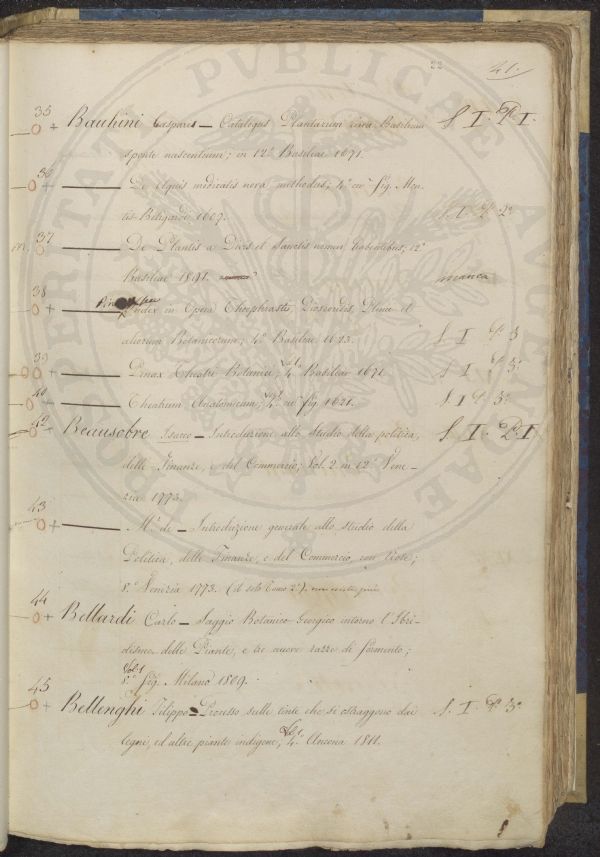 22 41.
35 Bauhini Caspares — Catalogus Plantarum circa Basileam S. I. P. I.
sponte nascentium; in 12.º Basileae 1671.
36 — De Aquis medicatis nova methodus; 4.º cu fig. Mon-
tis-Beligardi 1607. S. I. P. 2º
37 — De Plantis a Divis et Sanctis nomen habentibus; 12.º
Basileae 1891. manca
38 — Index in Opera Theophrasti, Dioscoridis, Plinii et
aliorum Botanicorum; 4.º Basileae 1623. S. I P. 3.
39 — Pinax Theatri Botanici; Vol. 1 4.º Basileae 1671 S I P. 3º
40 — Theatrum Anatomicum; 4.º cu fig. 1621. S. I P. 3º
42 Beausobre Isacco — Introduzione allo Studio della politica, S. I. P. I
delle Finanze, e del Commercio; Vol. 2 in 12.º Vene-
zia 1773.
43 — M.r de — Introduzione generale allo studio della
Politica, delle Finanze, e del Commercio, con Note;
8.º Venezia 1773. (il solo Tomo 2.º).
44 Bellardi Carlo — Saggio Botanico-Georgico intorno l'Ibri-
dismo delle Piante, e tre nuove razze di formento;
Vol. 1
8.º fig. Milano 1809.
45 Bellenghi Filippo — Processo sulle tinte che si estraggono dai S. I. P. 3º
legni, ed altre piante indigene; Vol. 1 4.º Ancona 1811.